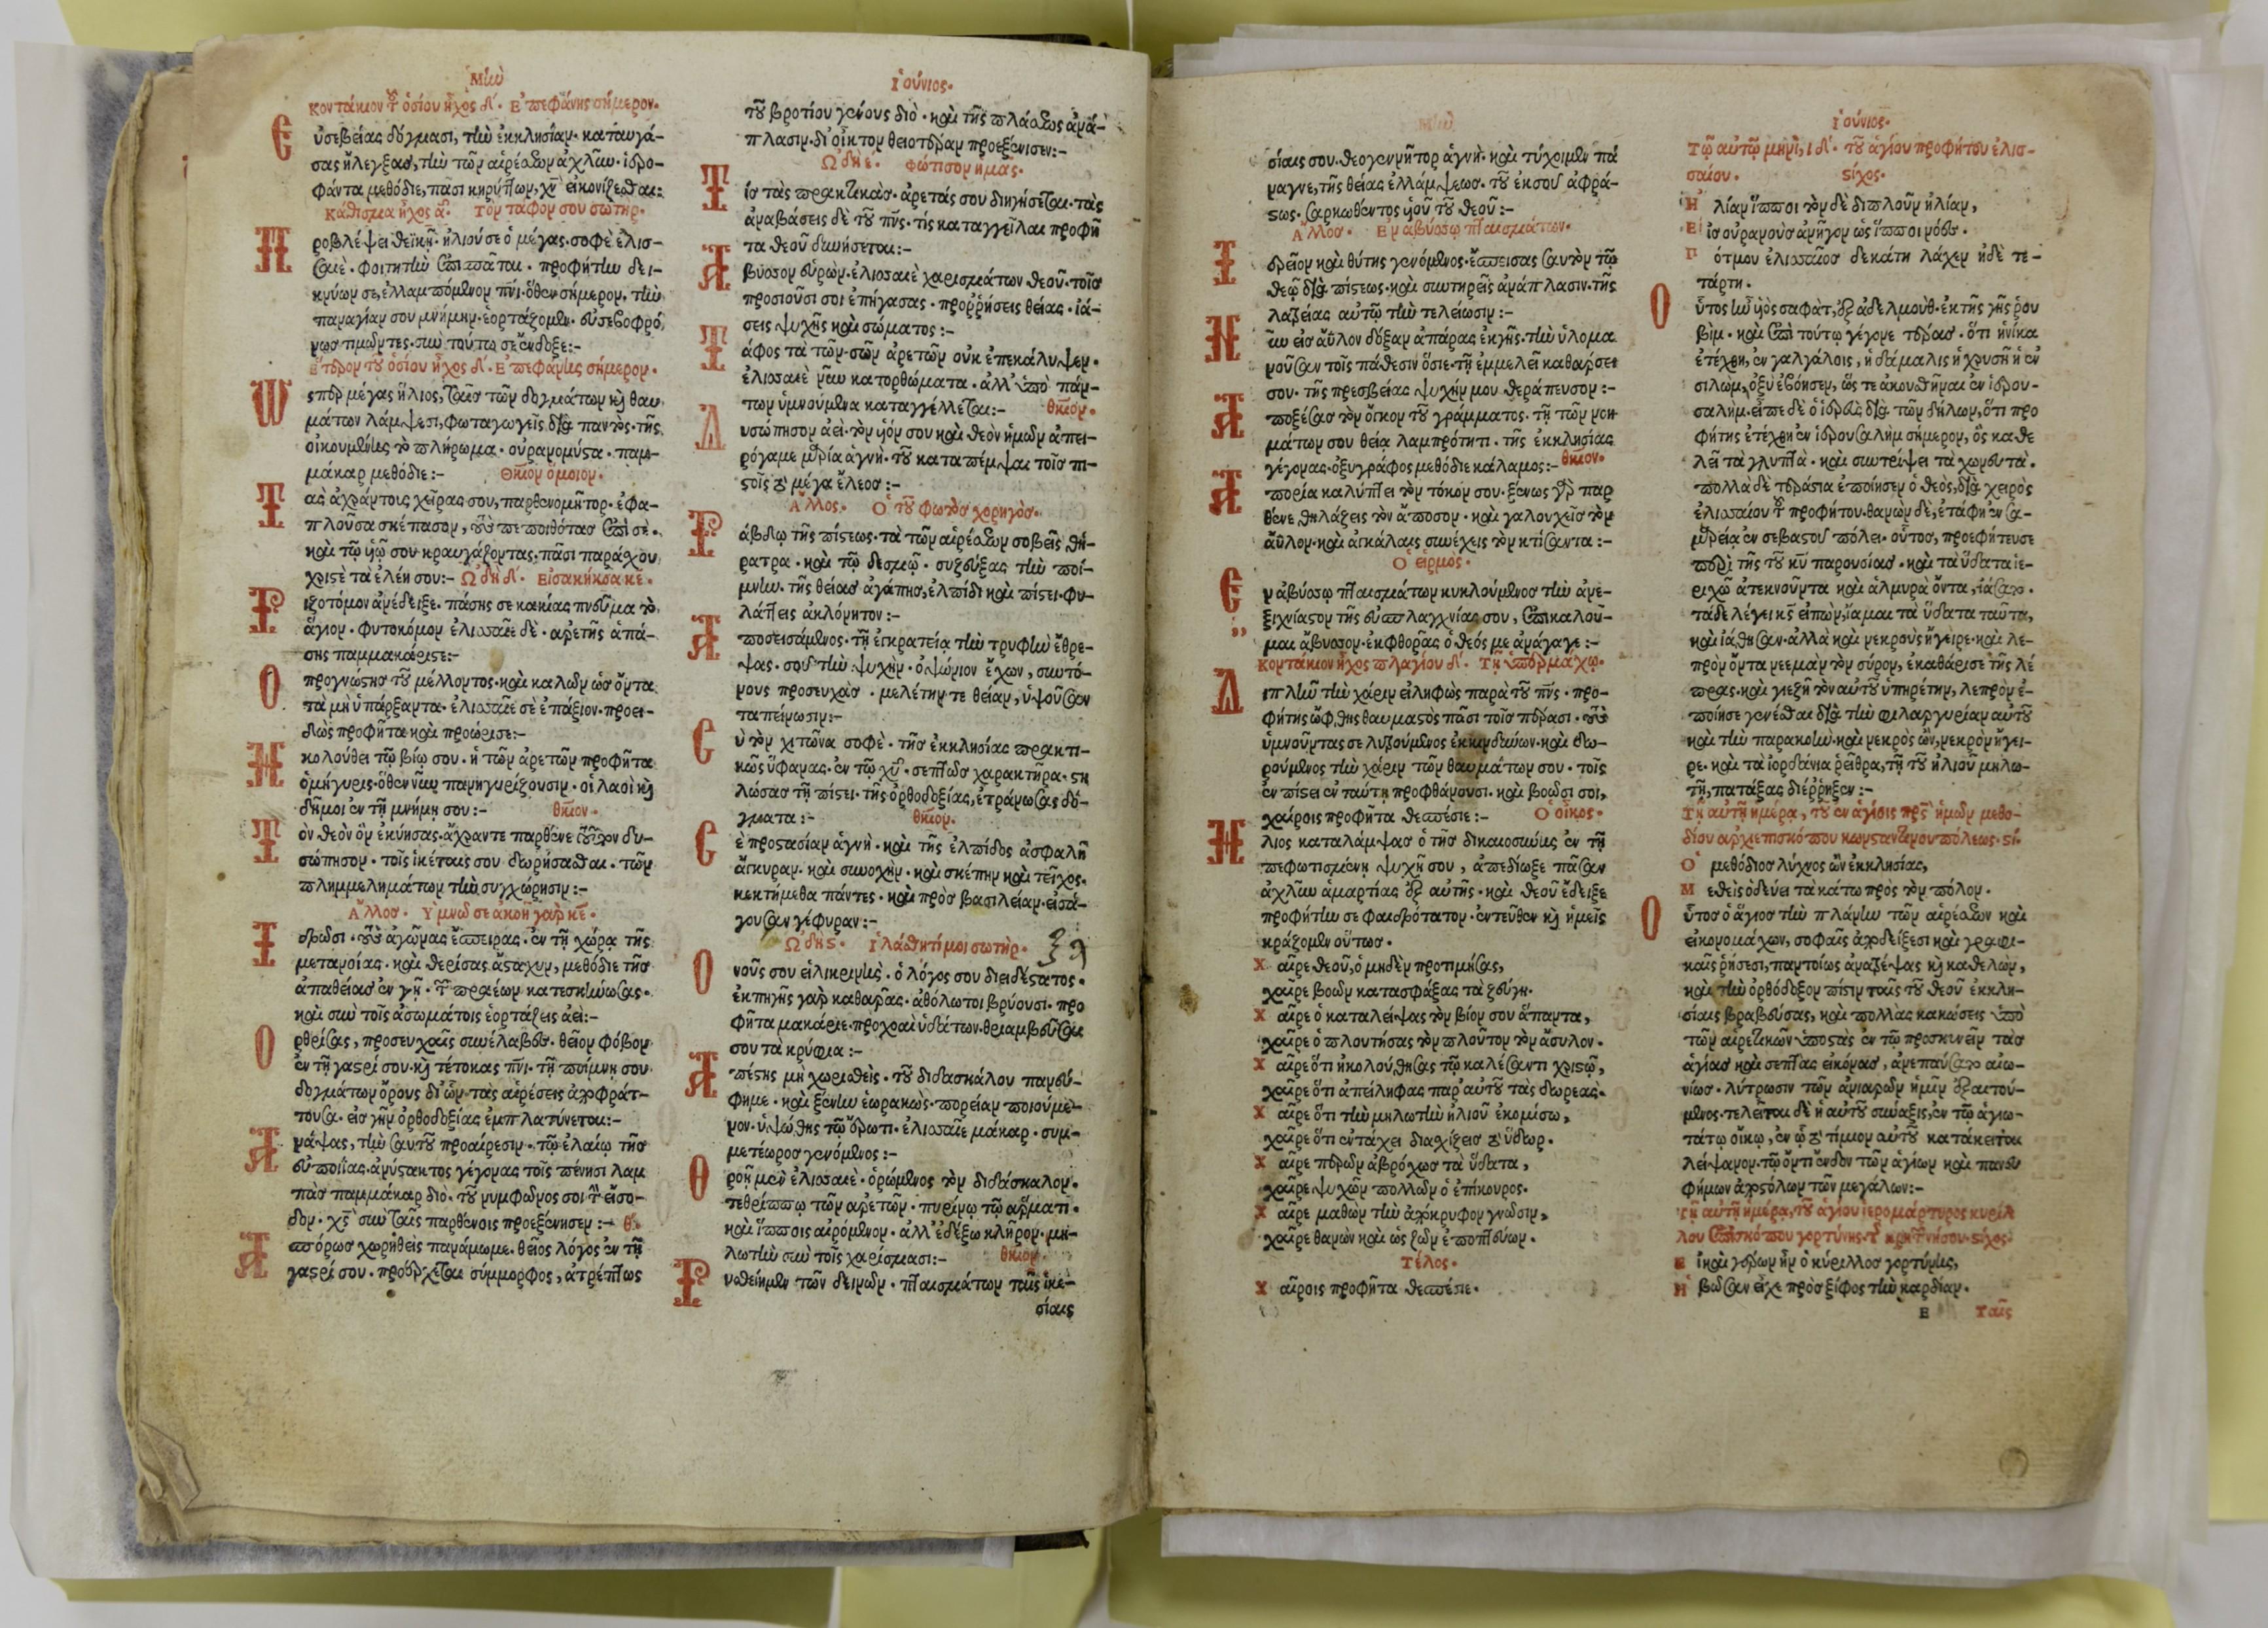 Μὴν
Κοντάκιον τοῦ ὁσίου ἦχος δ΄. Ἐπεφάνης σήμερον.
Εὐσεβείας δόγμασι, τὴν ἐκκλησίαν· καταυγά-
σας ἤλεγξας, τὴν τῶν αἱρέσεων ἀχλὺν· ἱερο-
φάντα μεθόδιε, πᾶσι κηρύττων, χν εἰκονίζεσθαι:
Κάθισμα ἦχος α΄. Τὸν τάφον σου σωτὴρ.
Προβλέψει θεϊκῇ· ἡλιού σε ὁ μέγας· σοφὲ ἐλισ-
σαιὲ· φοιτητὴν ἐπισπᾶται· προφήτην δει-
κνύων σε, ἐλλαμπόμενον πνι· ὅθεν σήμερον, τὴν
παναγίαν σου μνήμην· ἑορτάζομεν· εὐσεβοφρό
νως τιμῶντες· σὺν τούτω σε ἔνδοξε:-
Ἕτερον τοῦ ὁσίου ἦχος δ΄. Ἐπεφάνης σήμερον.
Ὥσπερ μέγας ἥλιος, ταῖς τῶν δογμάτων κὶ θαυ
μάτων λάμψεσι, φωταγωγεῖς διὰ παντὸς· τῆς
οἰκουμένης τὸ πλήρωμα· οὐρανομύστα· παμ-
μάκαρ μεθόδιε:- Θκίον ὅμοιον.
Τὰς ἀχράντοις χεῖρας σου, παρθενομῆτορ· ἐφα-
πλοῦσα σκέπασον, τοὺς πεποιθότας ἐπὶ σὲ·
καὶ τῷ υἱῷ σου κραυγάζοντας· πᾶσι παράσχου
χριστὲ τὰ ἐλέη σου:- Ὠδὴ δ΄. Εἰσακήκοα κε.
Ῥιζοτόμον ἀνέδειξε· πάσης σε κακίας πνεῦμα τὸ
ἅγιον· φυτοκόμον ἐλισσαῖε δὲ· ἀρετῆς ἁπά-
σης παμμακάριστε:-
Ὁ προγνώστης τοῦ μέλλοντος· καὶ καλῶν ὡς ὄντα
τὰ μὴ ὑπάρξαντα· ἐλισσαῖε σὲ ἐπάξιον· προει-
δὼς προφῆτα καὶ προώρισε:-
Ἠκολούθει τῷ βίῳ σου· ἡ τῶν ἀρετῶν προφῆτα
ὁμήγυρις· ὅθεν νῦν πανηγυρίζουσιν· οἱ λαοὶ κὶ
δῆμοι ἐν τῇ μνήμῃ σου:- θκίον.
Τὸν θεὸν ὃν ἐκύησας· ἄχραντε παρθένε τοῦτον δυ-
σώπησον· τοῖς ἱκέταις σου δωρήσασθαι· τῶν
πλημμελημάτων τὴν συγχώρησιν:-
Ἄλλος. Ὑμνῶ σε ἀκοὴν γαρ κε.
Ἱδρῶσι· τοὺς ἀγῶνας ἔσπειρας· ἐν τῇ χώρα τῆς
μετανοίας· καὶ θερίσας ἄσταχυν, μεθόδιε τῆς
ἀπαθείας ἐν γῇ· τῶν πραέων κατεσκήνωσας·
καὶ σὺν τοῖς ἀσωμάτοις ἑορτάζεις ἀεὶ:-
Ὀρθρίσας, προσευχαῖς συνέλαβες· θεῖον φόβον
ἐν τῇ γαστρί σου· κὶ τέτοκας πνι· τῇ ποίμνῃ σου
δογμάτων ὅρους δι' ὧν· τὰς αἱρέσεις ἀποφράτ-
τουσα· εἰς γῆν ὀρθοδοξίας ἐμπλατύνεται:-
Ἀνάψας, τὴν σαυτοῦ προαίρεσιν· τῷ ἐλαίῳ τῆς
εὐποιΐας· ἀνύστακτος γέγονας τοῖς πένησι λαμ
πὰς παμμάκαρ διὸ· τοῦ νυμφῶνος σοι τὴν εἴσο-
δον· χς σὺν ταῖς παρθένοις προεξένησεν:- θ.
Ἀσπόρως χωρηθεὶς πανάμωμε· θεῖος λόγος ἐν τῇ
γαστρί σου· προέρχεται σύμμορφος, ἀτρέπτως
Ἰούνιος.
τοῦ βροτίου γένους διὸ· καὶ τῆς πλάσεως ἀνά-
πλασιν· δι' οἶκτον θειοτέραν προεξένισεν:-
Ὠδὴ ε. Φώτισον ἡμᾶς.
Τίς τὰς πρακτικὰς· ἀρετάς σου διηγήσεται· τὰς
ἀναβάσεις δὲ τοῦ πνς· τίς καταγγεῖλαι προφῆ
τα θεοῦ δυνήσεται:-
Ἄβυσσον εὑρὼν· ἐλισσαιὲ χαρισμάτων θεοῦ· τοῖς
προσιοῦσι σοι ἐπήγασας· προρρήσεις θείας· ἰά-
σεις ψυχῆς καὶ σώματος:-
Τάφος τὰ τῶν· σῶν ἀρετῶν οὐκ ἐπεκάλυψεν·
ἐλισσαιὲ νῦν κατορθώματα· ἀλλ' ὑπὸ πάν-
των ὑμνούμενα καταγγέλλεται:- θκίον.
Δυσώπησον ἀεὶ· τὸν υἱόν σου καὶ θεὸν ἡμῶν ἀπει-
ρόγαμε μρία ἁγνὴ· τοῦ καταπέμψαι τοῖς πι-
στοῖς τὸ μέγα ἔλεος:-
Ἄλλος. Ὁ τοῦ φωτὸς χορηγὸς.
Ῥάβδῳ τῆς πίστεως· τὰ τῶν αἱρέσεων σοβεῖς θή-
ρατρα· καὶ τῷ δεσμῷ· συζεύξας τὴν ποί-
μνην· τῆς θείας ἀγάπης, ἐλπίδι καὶ πίστει· φυ-
λάττεις ἀκλόνητον:-
Ἀποσεισάμενος· τῇ ἐγκρατείᾳ τὴν τρυφὴν ἔθρε-
ψας· σοῦ τὴν ψυχὴν· ὀψώνιον ἔχων, συντό-
νους προσευχὰς· μελέτην τε θείαν, ὑψοῦσαν
ταπείνωσιν:-
Εὖ τὸν χιτῶνα σοφὲ· τῆς ἐκκλησίας πρακτι-
κῶς ὕφανας· ἐν τῷ χυ· σεπτῶς χαρακτῆρα· στη
λώσας τῇ πίστει· τῆς ὀρθοδοξίας, ἐτράνωσας δό-
γματα:- θκίον.
Σὲ προστασίαν ἁγνὴ· καὶ τῆς ἐλπίδος ἀσφαλῆ
ἄγκυραν· καὶ συνοχὴν· καὶ σκέπην καὶ τεῖχος·
κεκτήμεθα πάντες· καὶ πρὸς βασιλείαν· εἰσά-
γουσαν γέφυραν:-
Ὠδὴ ς. Ἱλάσθητί μοι σωτὴρ.
Ὁ νοῦς σου εἰλικρινὴς· ὁ λόγος σου διειδέστατος·
ἐκ πηγῆς γαρ καθαρᾶς· ἀθόλωτοι βρύουσι· προ
φῆτα μακάριε· προχοαὶ ὑδάτων· θριαμβεῦσαι
σου τὰ κρύφια:-
Ἀπέστης μὴ χωρισθεὶς· τοῦ διδασκάλου πανεύ-
φημε· καὶ ξένην ἑωρακὼς· πορείαν ποιούμε-
νον· ὑψώθης τῷ ἔρωτι· ἐλισσαῖε μάκαρ· συμ-
μετέωρος γενόμενος:-
Θροῆ μὲν ἐλισσαιὲ· ὁρώμενος τὸν διδάσκαλον·
τεθρίππῳ τῶν ἀρετῶν· πυρίνῳ τῷ ἅρματι·
καὶ ἵπποις αἰρόμενον· ἀλλ' ἐδέξω κλῆρον· μη-
λωτὴν σὺν τοῖς χαρίσμασι:- θκίον.
Ῥυσθείημεν τῶν δεινῶν· πταισμάτων ταῖς ἱκε-
σίαις
σίαις σου· θεογεννῆτορ ἁγνὴ· καὶ τύχοιμεν πά
ναγνε, τῆς θείας ἐλλάμψεως· τοῦ ἐκ σοῦ ἀφρά-
στως· σαρκωθέντος υἱοῦ τοῦ θεοῦ:-
Ἄλλος. Ἐν ἀβύσσῳ πταισμάτων.
Ἱερεῖον καὶ θύτης γενόμενος· ἔσπεισας σαυτὸν τῷ
θεῷ διὰ πίστεως· καὶ σωτηρεῖς ἀνάπλασιν· τῆς
λαβείας αὐτῷ τὴν τελείωσιν:-
Νῦν εἰς ἄϋλον δόξαν ἀπάρας ἐκ γῆς· τὴν ὑλομα
νοῦσαν τοῖς πάθεσιν ὅσιε· τῇ ἐμμελεῖ καθάρσει
σου· τῆς πρεσβείας ψυχήν μου θεράπευσον:-
Ἀποξέσας τὸν ὄγκον τοῦ γράμματος· τῇ τῶν νοη-
μάτων σου θείᾳ λαμπρότητι· τῆς ἐκκλησίας
γέγονας· ὀξυγράφος μεθόδιε κάλαμος:- θκίον.
Ἀπορία καλύπτει τὸν τόκον σου· ξένως γὰρ παρ
θένε θηλάζεις τὸν ἄποσον· καὶ γαλουχεῖς τὸν
ἄϋλον· καὶ ἀγκάλαις συνέχεις τὸν κτίσαντα:-
Ὁ εἱρμὸς.
Ἐν ἀβύσσῳ πταισμάτων κυκλούμενος τὴν ἀνε-
ξιχνίαστον τῆς εὐσπλαγχνίας σου, ἐπικαλοῦ-
μαι ἄβυσσον· ἐκ φθορᾶς ὁ θεός με ἀνάγαγε:-
Κοντάκιον ἦχος πλαγίου δ΄. Τῇ ὑπερμάχῳ.
Διπλῆν τὴν χάριν εἰληφὼς παρὰ τοῦ πνς· προ-
φήτης ὤφθης θαυμαστὸς πᾶσι τοῖς πέρασι· τοὺς
ὑμνοῦντας σε λυτρούμενος ἐκ κινδύνων· καὶ δω-
ρούμενος τὴν χάριν τῶν θαυμάτων σου· τοῖς
ἐν πίστει ἐν ταύτῃ προφθάνουσι· καὶ βοῶσί σοι,
χαίροις προφῆτα θεσπέσιε:- Ὁ οἶκος.
Ἥλιος καταλάμψας ὁ τῆς δικαιοσύνης ἐν τῇ
πεφωτισμένῃ ψυχῇ σου, ἀπεδίωξε πᾶσαν
ἀχλὺν ἁμαρτίας ἐξ αὐτῆς· καὶ θεοῦ ἔδειξε
προφήτην σε φαιδρότατον· ἐντεῦθεν κὶ ἡμεῖς
κράζομεν οὕτως.
Χαῖρε θεοῦ, ὁ μηδὲν προτιμήσας,
χαῖρε βοῶν κατασφάξας τὰ ζεύγη·
Χαῖρε ὁ καταλείψας τὸν βίον σου ἅπαντα,
χαῖρε ὁ πλουτήσας τὸν πλοῦτον τὸν ἄσυλον·
Χαῖρε ὅτι ἠκολούθησας τῷ καλέσαντι χριστῷ,
χαῖρε ὅτι ἀπείληφας παρ' αὐτοῦ τὰς δωρεὰς·
Χαῖρε ὅτι τὴν μηλωτὴν ἡλιοῦ ἐκομίσω,
χαῖρε ὅτι ἐν τάχει διασχίζεις τὸ ὕδωρ·
Χαῖρε περῶν ἀβρόχως τὰ ὕδατα,
χαῖρε ψυχῶν πολλῶν ὁ ἐπίκουρος·
Χαῖρε μαθὼν τὴν ἀπόκρυφον γνῶσιν,
χαῖρε θανὼν καὶ ὡς ζῶν ἐποπτεύων·
Τέλος.
Χαίροις προφῆτα θεσπέσιε·
Ἰούνιος.
Τῷ αὐτῷ μηνὶ, ιδ΄. τοῦ ἁγίου προφήτου ἐλισ-
σαίου. στίχος.
Ἡλίαν ἵπποι τὸν δὲ διπλοῦν ἡλίαν,
Εἰς οὐρανοὺς ἀνῆγον ὡς ἵπποι νόες.
Πότμου ἐλισσαῖος δεκάτη λάχεν ἠδὲ τε-
τάρτη·
Οὗτος ἦν υἱὸς σαφὰτ, ἐξ ἀδελμοὺθ· ἐκ τῆς γῆς ῥου
βὶμ· καὶ ἐπὶ τούτῳ γέγονε τέρας· ὅτι ἡνίκα
ἐτέχθη, ἐν γαλγάλοις, ἡ δάμαλις ἡ χρυσῆ ἡ ἐν
σιλὼμ, ὀξὺ ἐβόησεν, ὥς τε ἀκουσθῆναι ἐν ἱερου-
σαλήμ· εἶπε δὲ ὁ ἱερεὺς διὰ τῶν δήλων, ὅτι προ
φήτης ἐτέχθη ἐν ἱερουσαλὴμ σήμερον, ὃς καθε
λεῖ τὰ γλυπτὰ· καὶ συντρίψει τὰ χωνευτὰ·
πολλὰ δὲ τεράστια ἐποίησεν ὁ θεὸς, διὰ χειρὸς
ἐλισσαίου τοῦ προφήτου· θανὼν δὲ, ἐτάφη ἐν σα-
μαρείᾳ ἐν σεβαστοῦ πόλει· οὗτος, προεφήτευσε
περὶ τῆς τοῦ κυ παρουσίας· καὶ τὰ ὕδατα ἱε-
ριχῶ ἀτεκνοῦντα καὶ ἁλμυρὰ ὄντα, ἰάσατο·
τάδε λέγει κς εἰπὼν, ἴαμαι τὰ ὕδατα ταῦτα,
καὶ ἰάθησαν· ἀλλὰ καὶ νεκροὺς ἤγειρε· καὶ λε-
πρὸν ὄντα νεεμὰν τὸν σύρον, ἐκαθάρισε τῆς λέ
πρας· καὶ γιεζῆ τὸν αὐτοῦ ὑπηρέτην, λεπρὸν ἐ-
ποίησε γενέσθαι διὰ τὴν φιλαργυρίαν αὐτοῦ
καὶ τὴν παρακοὴν· καὶ νεκρὸς ὢν, νεκρὸν ἤγει-
ρε· καὶ τὰ ἰορδάνια ῥεῖθρα, τῇ τοῦ ἡλιοῦ μηλω-
τῇ, πατάξας διέρρηξεν:-
Τῇ αὐτῇ ἡμέρα, τοῦ ἐν ἁγίοις πρς ἡμῶν μεθο-
δίου ἀρχιεπισκόπου κωνσταντινουπόλεως· στί.
Ὁ μεθόδιος λύχνος ὢν ἐκκλησίας,
Μεθεὶς ὁδεύει τὰ κάτω πρὸς τὸν πόλον.
Οὗτος ὁ ἅγιος τὴν πλάνην τῶν αἱρέσεων καὶ
εἰκονομάχων, σοφαῖς ἀποδείξεσι καὶ γραφι-
καῖς ῥήσεσι, παντοίως ἀνατρέψας κὶ καθελὼν,
καὶ τὴν ὀρθόδοξον πίστιν ταῖς τοῦ θεοῦ ἐκκλη-
σίαις βραβεύσας, καὶ πολλὰς κακώσεις ὑπὸ
τῶν αἱρετικῶν ὑποστὰς ἐν τῷ προσκυνεῖν τὰς
ἁγίας καὶ σεπτὰς εἰκόνας, ἀνεπαύσατο αἰω-
νίως· λύτρωσιν τῶν ἀνιαρῶν ἡμῖν ἐξαιτού-
μενος· τελεῖται δὲ ἡ αὐτοῦ σύναξις, ἐν τῷ ἁγιω-
τάτῳ οἴκῳ, ἐν ᾧ τὸ τίμιον αὐτοῦ κατάκειται
λείψανον· τῷ ὄντι ἔνδον τῶν ἁγίων καὶ πανευ
φήμων ἀποστόλων τῶν μεγάλων:-
Τῇ αὐτῇ ἡμέρα, τοῦ ἁγίου ἱερομάρτυρος κυρίλ
λου ἐπισκόπου γορτύνης τῆς κρήτης στίχος.
Εἰ καὶ γέρων ἦν ὁ κύριλλος γορτύνης,
Ἡβῶσαν εἶχε πρὸς ξίφος τὴν καρδίαν.
Ε Ταῖς